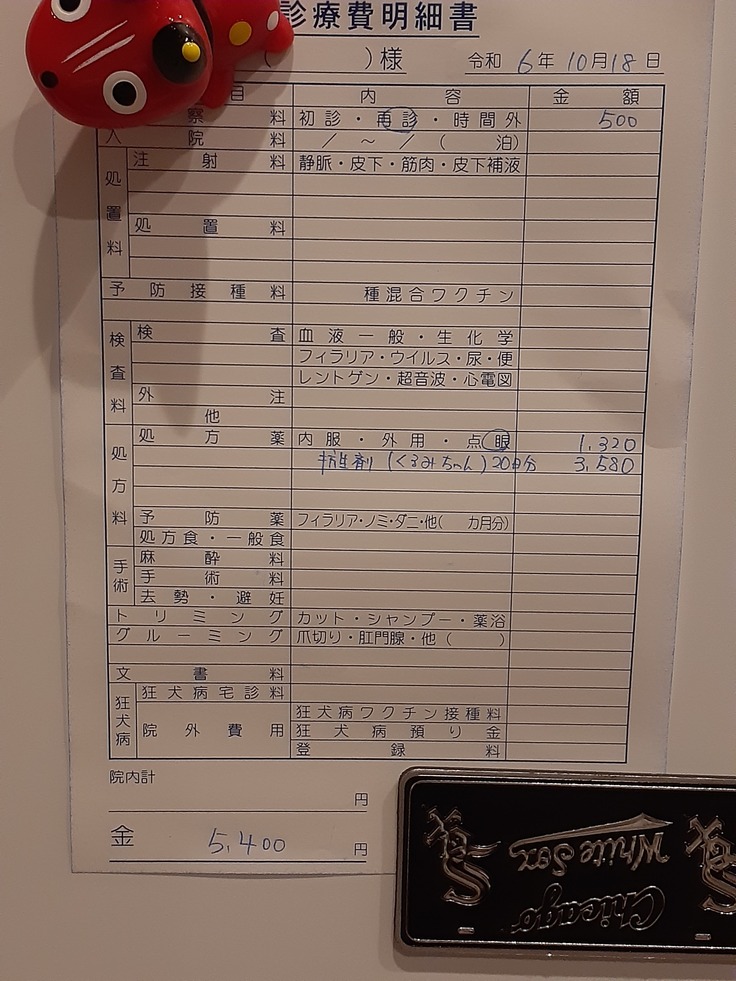 診療費明細書
( )様 令和 6年 10月18日
目 内容 金額
察料 初診・再診・時間外 500
入院料 / ～ / ( 泊)
処置料 注射料 静脈・皮下・筋肉・皮下補液
処置料
予防接種料 種混合ワクチン
検査料 検査 血液一般・生化学
フィラリア・ウイルス・尿・便
レントゲン・超音波・心電図
外注
他
処方料 処方薬 内服・外用・点眼 1,320
抗生剤 (くるみちゃん) 20日分 3,580
予防薬 フィラリア・ノミ・ダニ・他( カ月分)
処方食・一般食
手術 麻酔料
手術料
去勢・避妊
トリミング カット・シャンプー・薬浴
グルーミング 爪切り・肛門腺・他( )
文書料
狂犬病 狂犬病宅診料
院外費用 狂犬病ワクチン接種料
狂犬病預り金
登録料
院内計
円
金 5,400 円
Chicago
White Sox
Sox
Sox